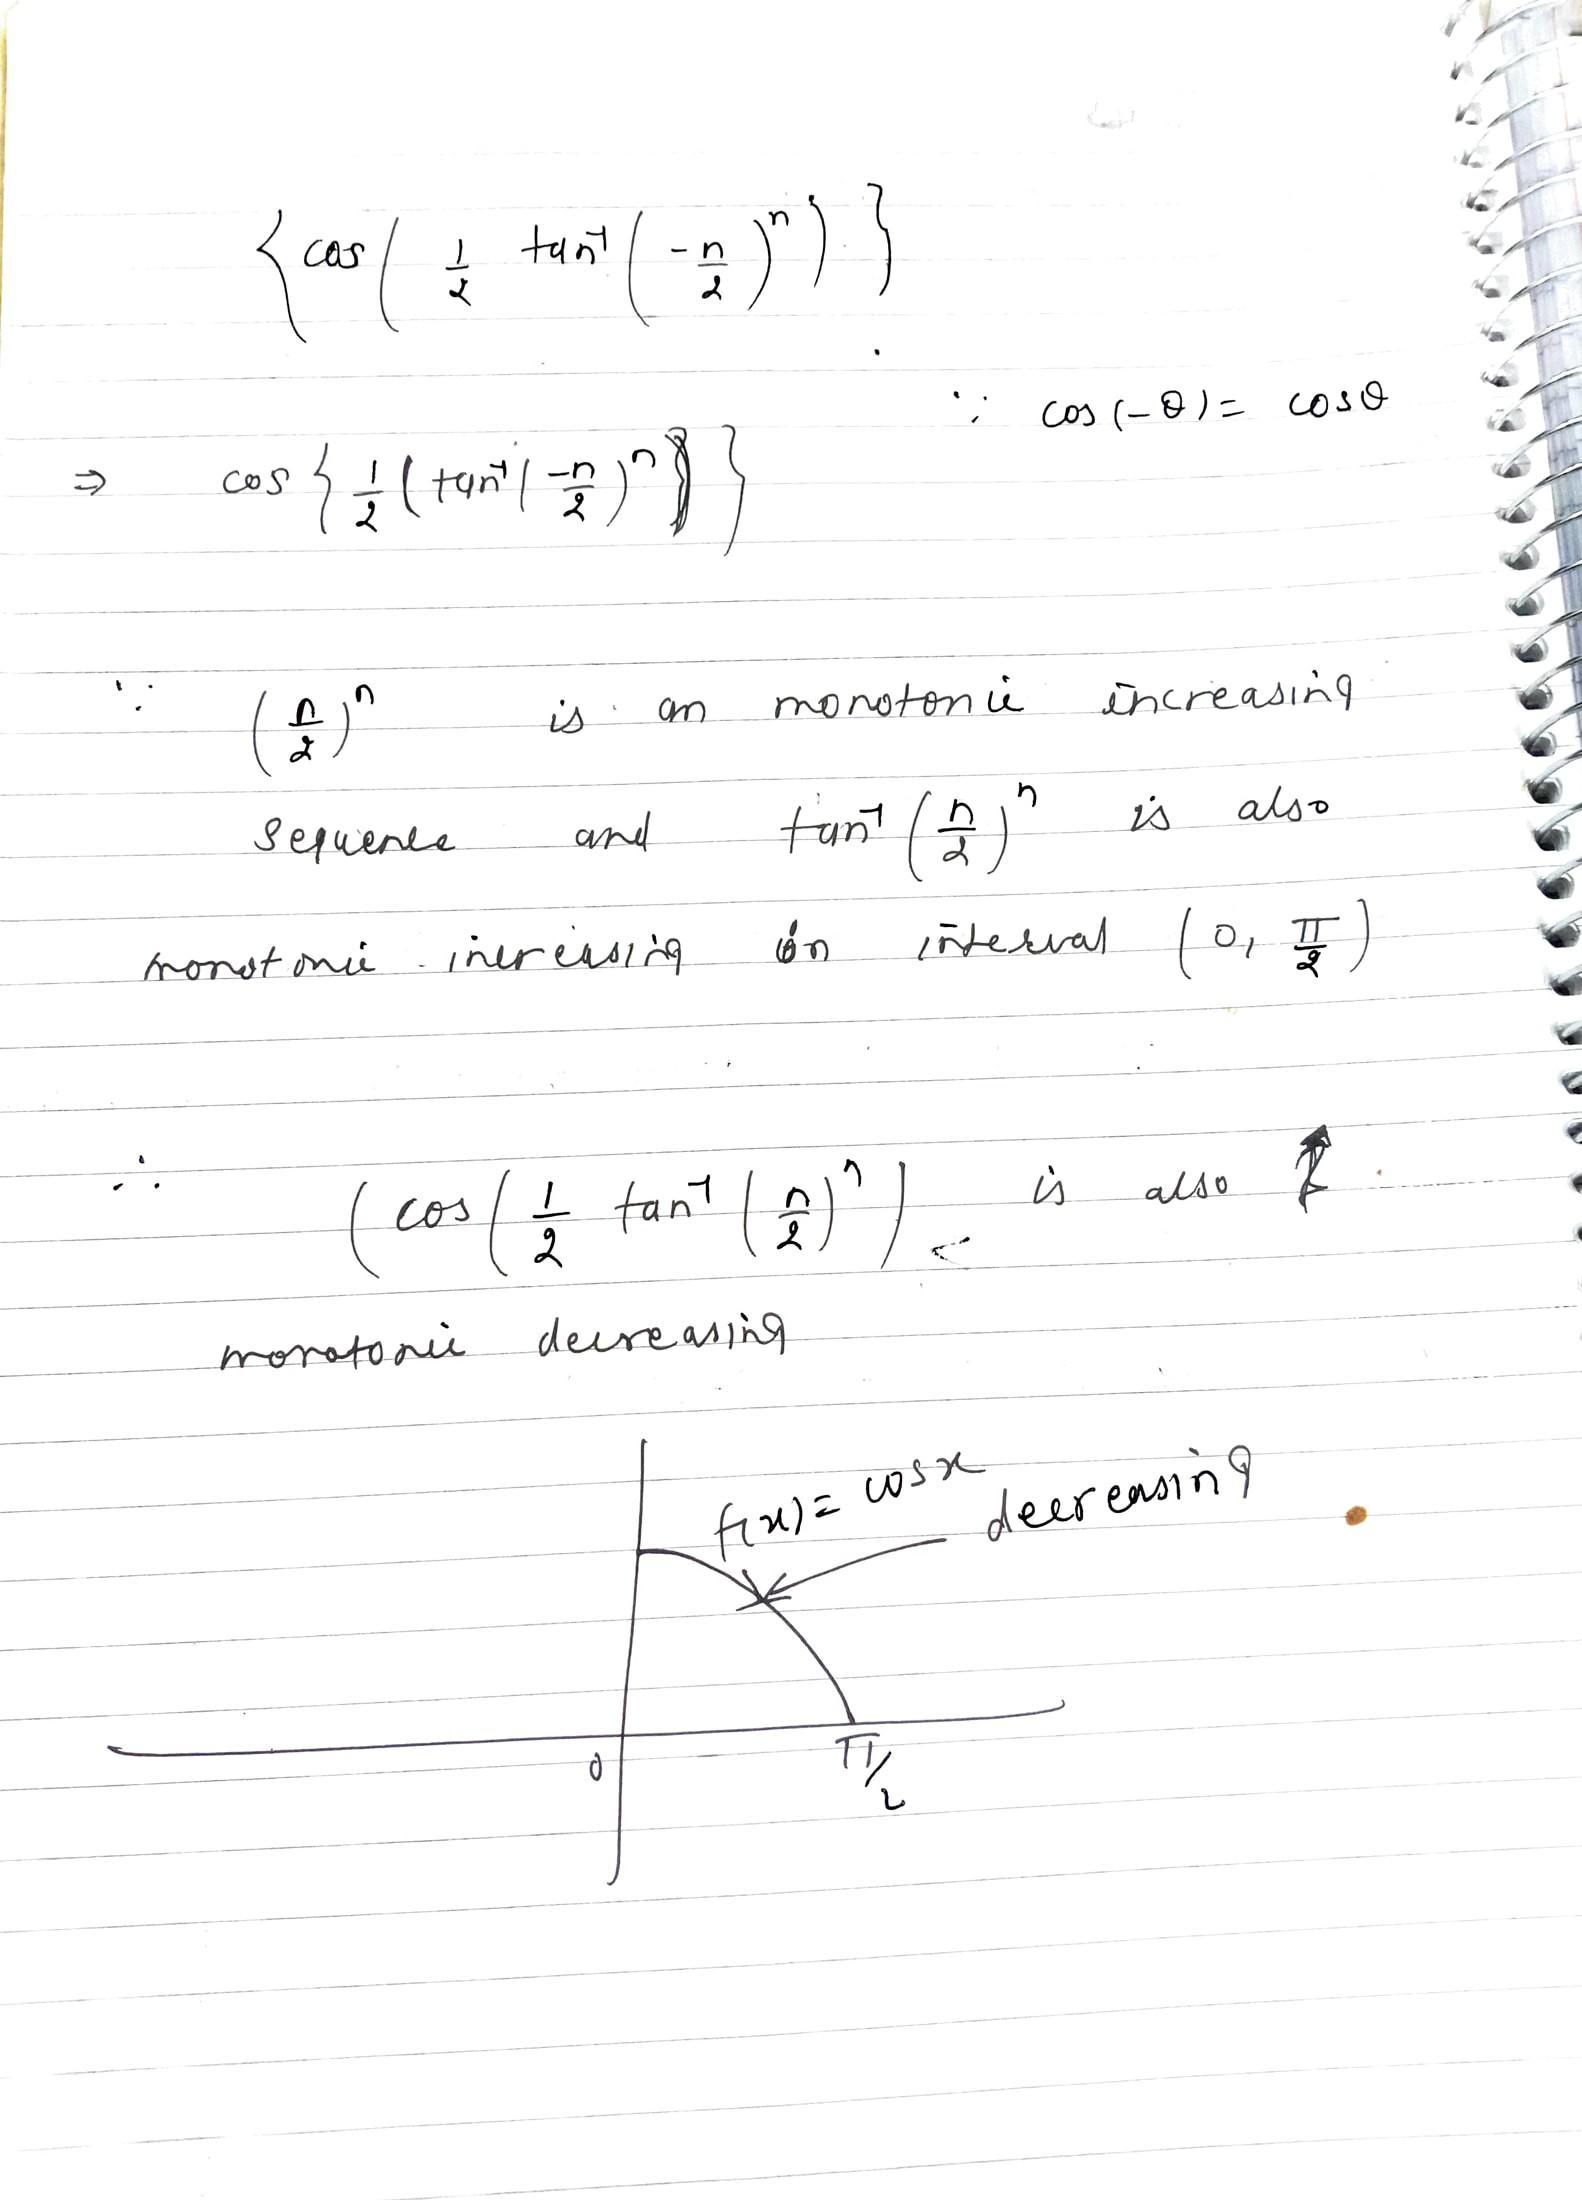 { cos ( 1/2 tan⁻¹ ( -n/2 )ⁿ ) }
∵ cos(-θ) = cosθ
⇒ cos { 1/2 ( tan⁻¹ ( -n/2 )ⁿ ) }
∵ ( n/2 )ⁿ is an monotonic increasing
sequence and tan⁻¹ ( n/2 )ⁿ is also
monotonic increasing on interval ( 0, π/2 )
∴ ( cos ( 1/2 tan⁻¹ ( n/2 )ⁿ ) is also
monotonic decreasing
f(x) = cosx
decreasing
0
π/2